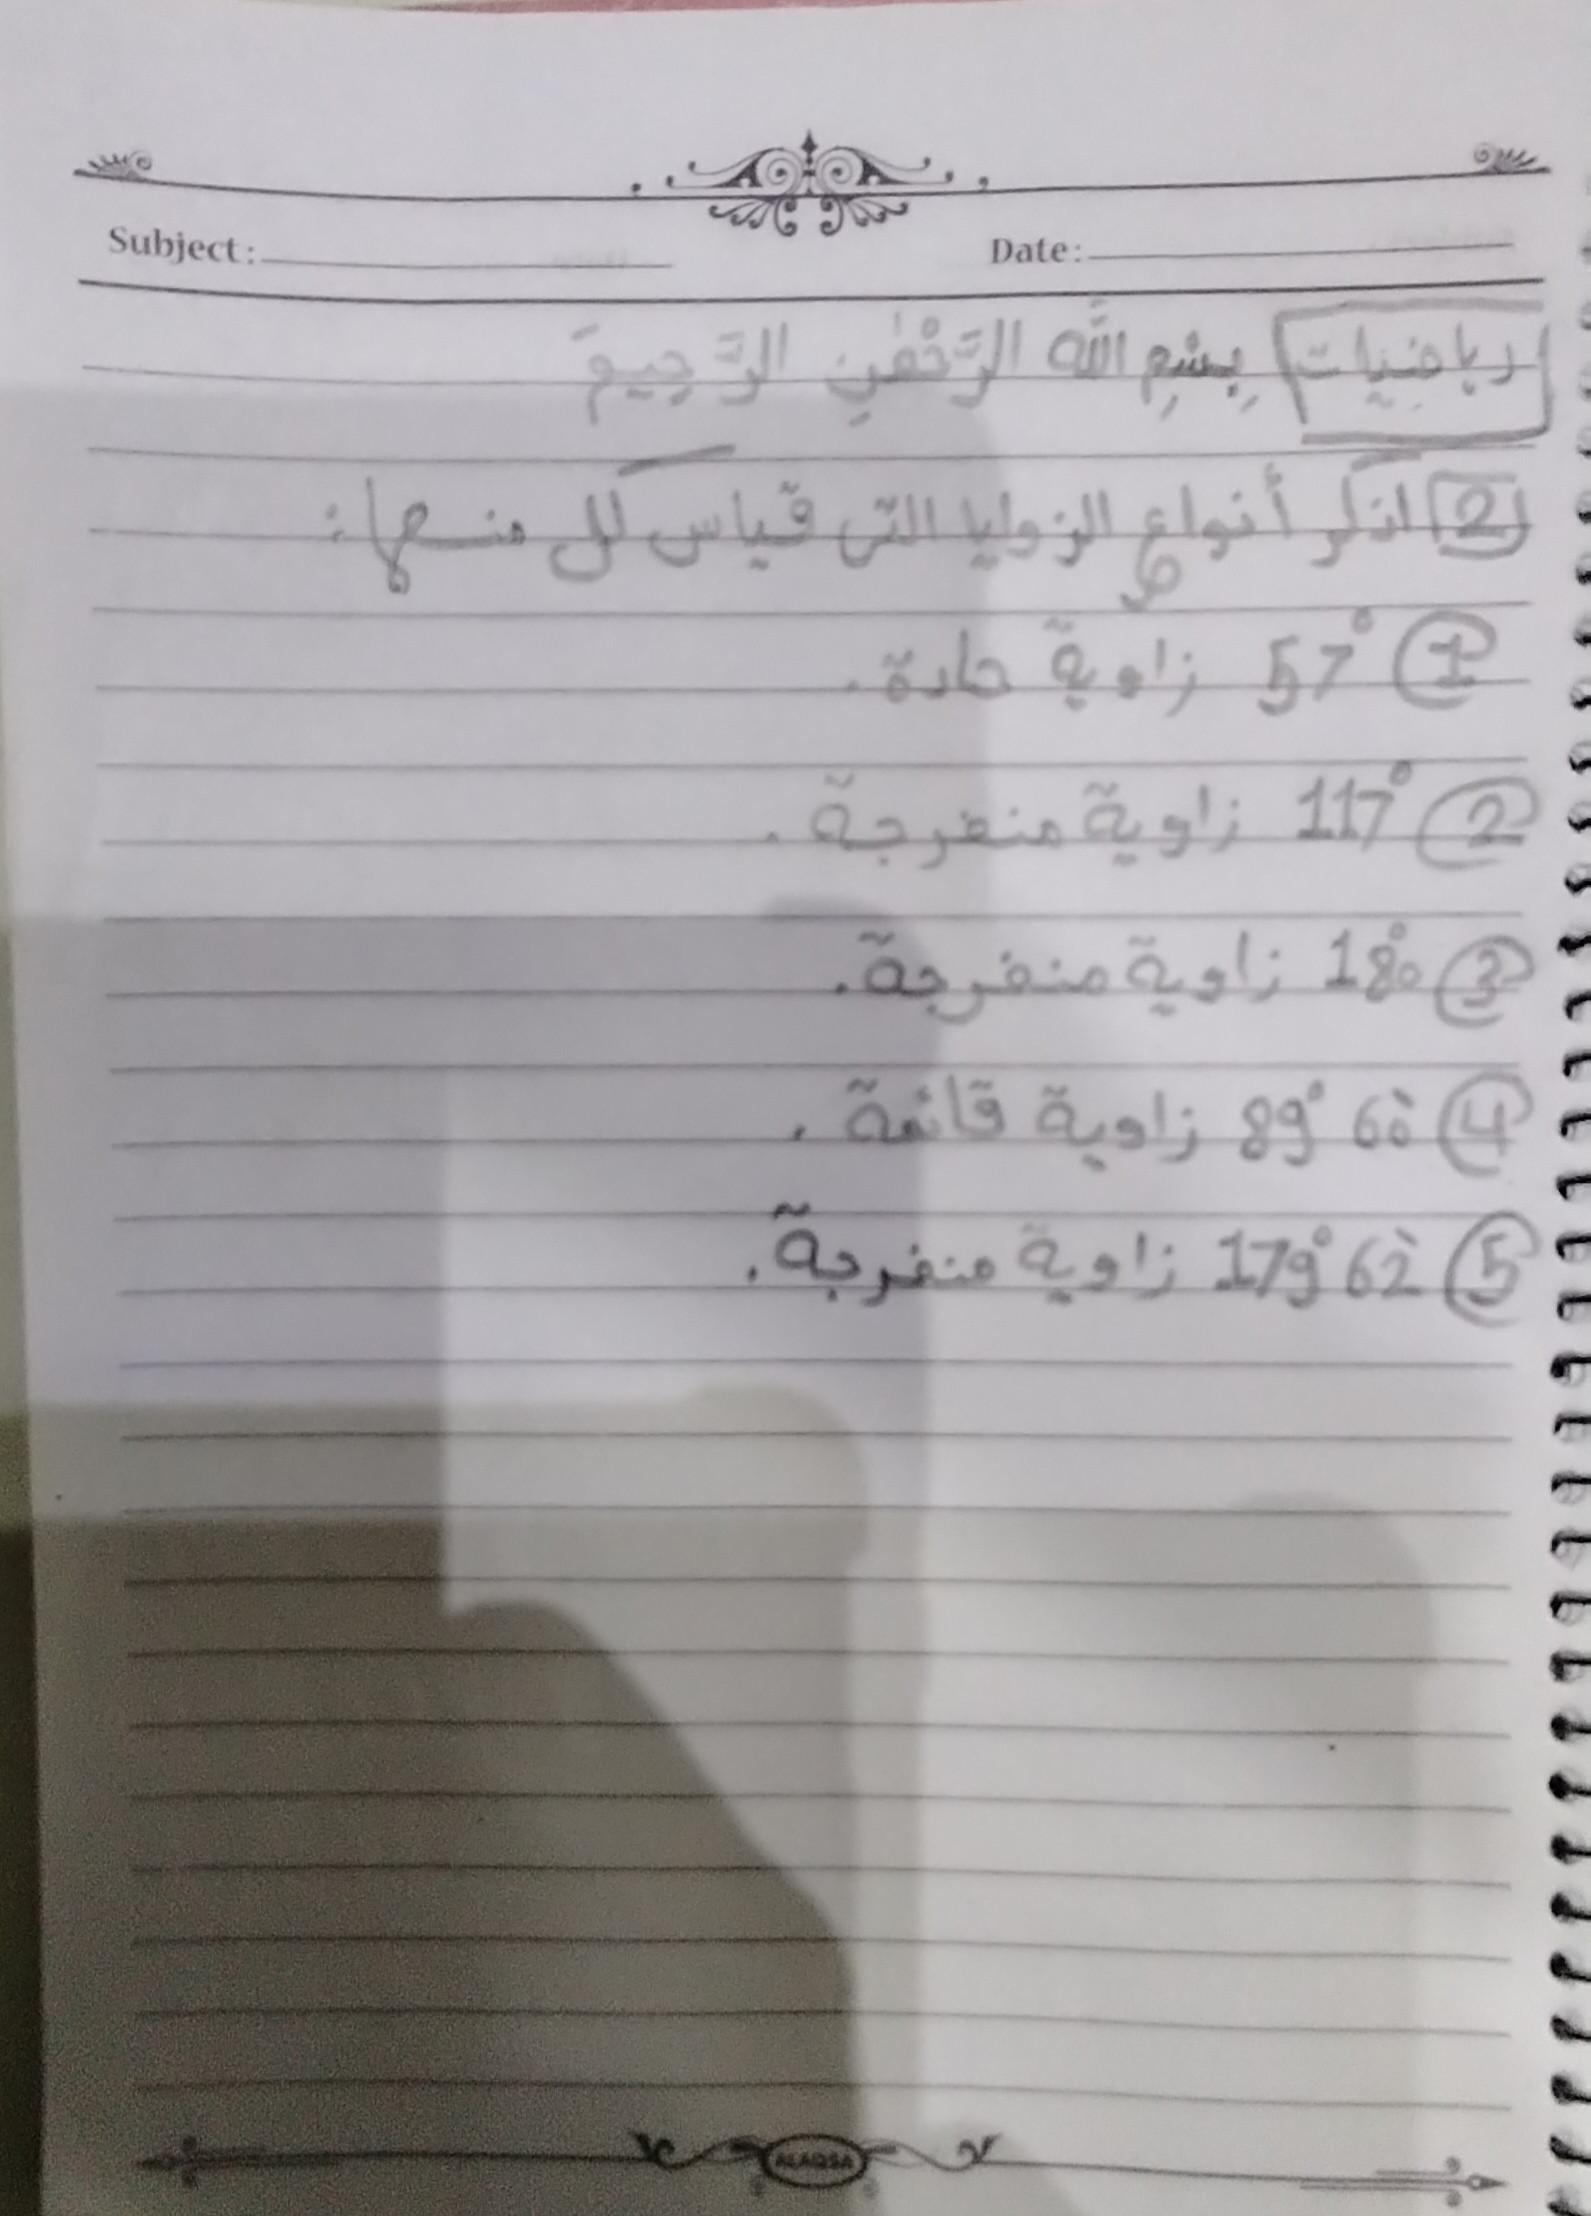 Subject: Date:
رياضيات بِسْمِ اللَّهِ الرَّحْمٰنِ الرَّحِيمِ
2 اذكر أنواع الزوايا التي قياس كل منها:
1 57° زاوية حادة.
2 117° زاوية منفرجة.
3 180° زاوية منفرجة.
4 89° 60' زاوية قائمة.
5 179° 62' زاوية منفرجة.
ALAQSA